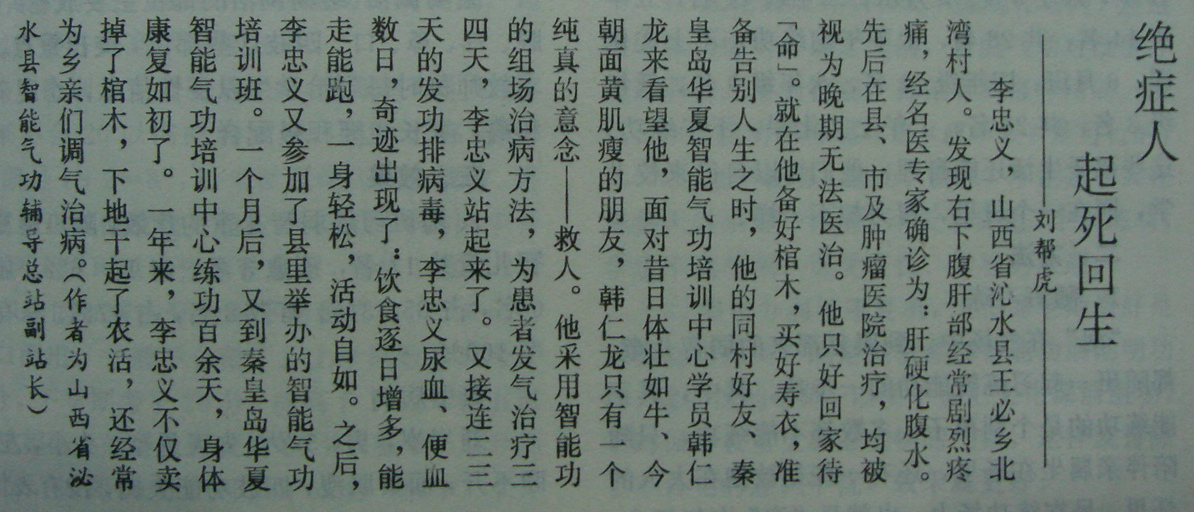 绝症人
起死回生
刘帮虎
李忠义，山西省沁水县王必乡北
湾村人。发现右下腹肝部经常剧烈疼
痛，经名医专家确诊为：肝硬化腹水。
先后在县、市及肿瘤医院治疗，均被
视为晚期无法医治。他只好回家待
「命」就在他备好棺木，买好寿衣，准
备告别人生之时，他的同村好友、秦
皇岛华夏智能气功培训中心学员韩仁
龙来看望他，面对昔日体壮如牛、今
朝面黄肌瘦的朋友，韩仁龙只有一个
纯真的意念——救人。他采用智能功
的组场治病方法，为患者发气治疗三
四天，李忠义站起来了。又接连二三
天的发功排病毒，李忠义尿血、便血
数日，奇迹出现了：饮食逐日增多，能
走能跑，一身轻松，活动自如。之后，
李忠义又参加了县里举办的智能气功
培训班。一个月后，又到秦皇岛华夏
智能气功培训中心练功百余天，身体
康复如初了。一年来，李忠义不仅卖
掉了棺木，下地干起了农活，还经常
为乡亲们调气治病。（作者为山西省泌
水县智能气功辅导总站副站长）